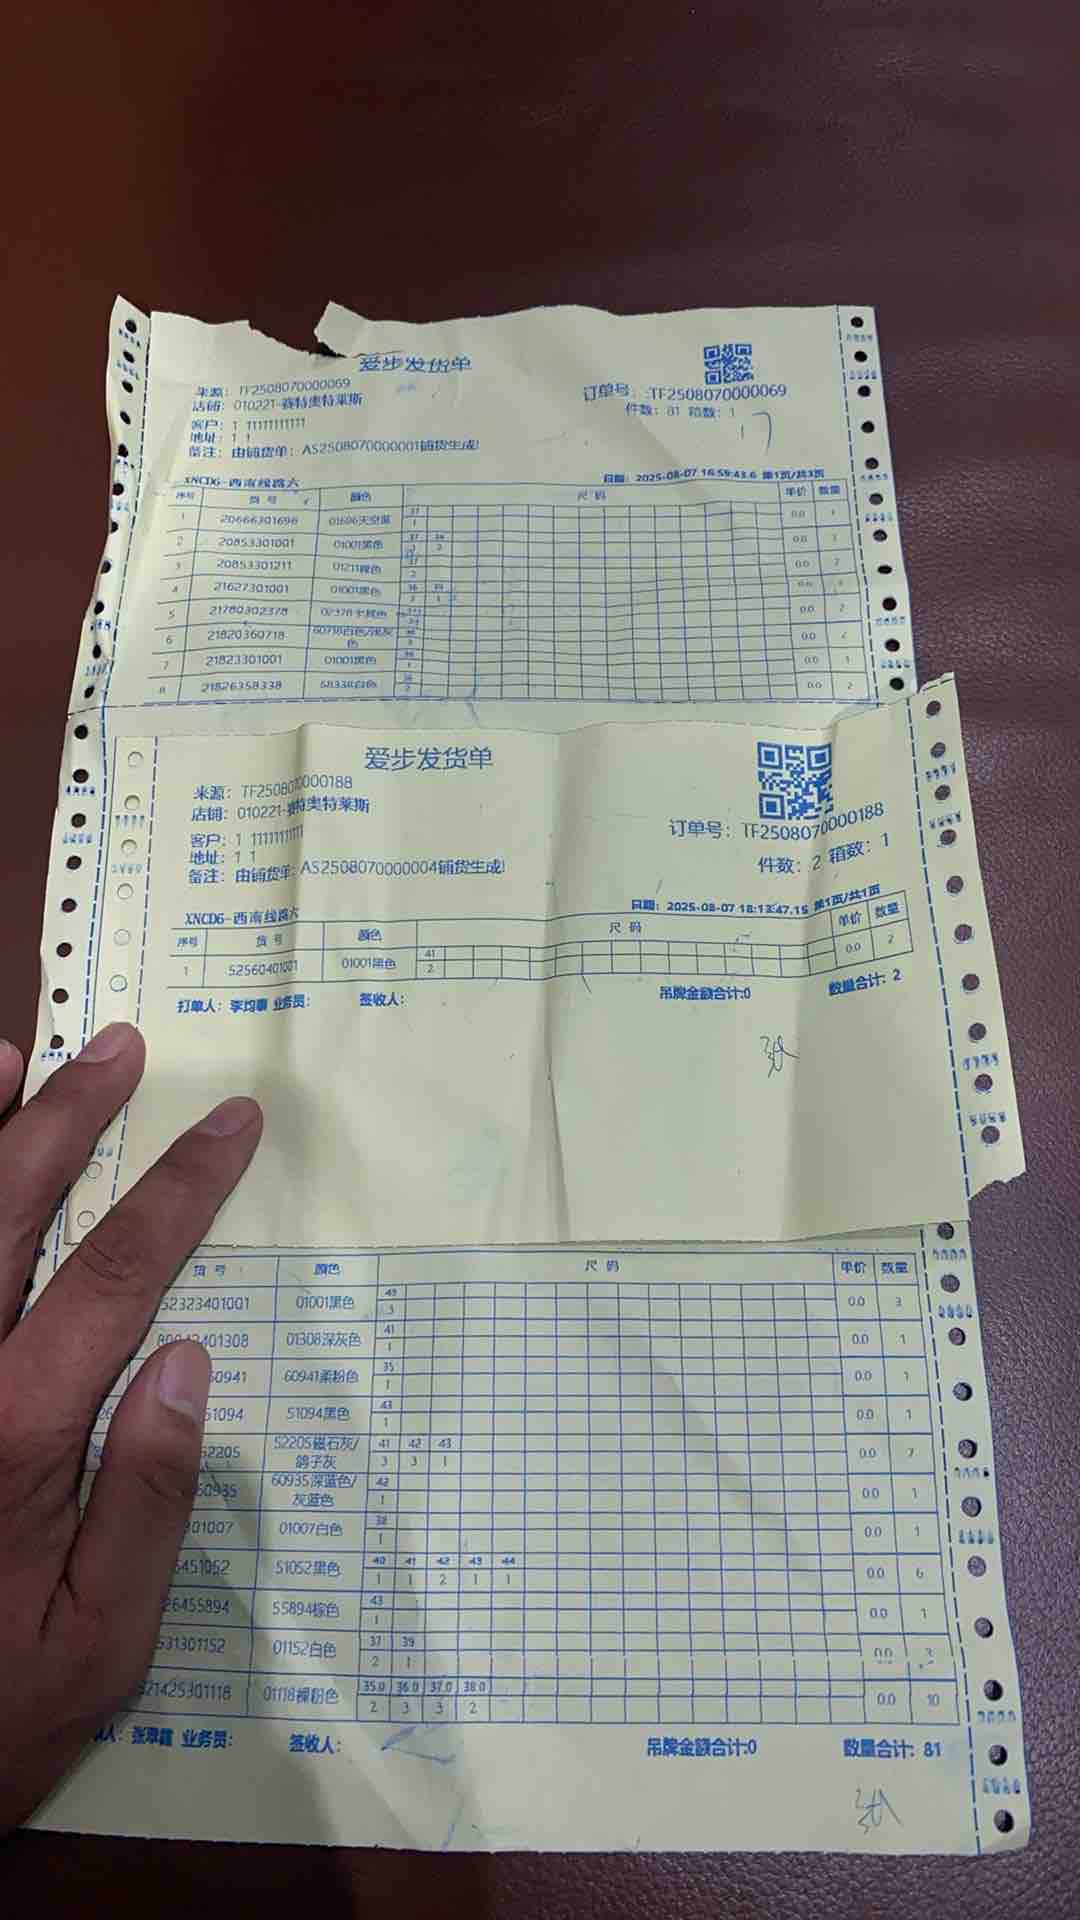 爱步发货单
来源：TF2508070000069
店铺：010221-赛特奥特莱斯
客户：1 11111111111
地址：1 1
备注：由铺货单：AS2508070000001铺货生成!
订单号：:TF2508070000069
件数：81 箱数：1
17
XNCD6-西南线路六
日期：2025-08-07 16:59:43.6 第1页/共3页
序号 货号 颜色 尺码 单价 数量
1 20666301696 01696天空蓝 37 1 0.0 1
2 20853301001 01001黑色 37 2 0.0 3
3 20853301211 37 2 0.0 2
4 21627301001 01001黑色 36 0.0
5 21780302378 0.0 2
6 21820360718 60718白色/浅灰色 0.0 2
7 21823301001 01001黑色 1 0.0 1
8 21826358338 2 0.0 2
爱步发货单
来源：TF2508070000188
店铺：010221-赛特奥特莱斯
客户：1 11111111111
地址：1 1
备注：由铺货单：AS2508070000004铺货生成!
订单号：:TF2508070000188
件数：2 箱数：1
XNCD6-西南线路六
日期：2025-08-07 18:13:47.15 第1页/共1页
序号 货号 颜色 尺码 单价 数量
1 52560401001 01001黑色 41 2 0.0 2
打单人：李均 业务员： 签收人： 吊牌金额合计:0 数量合计：2
货号 颜色 尺码 单价 数量
52323401001 01001黑色 43 3 0.0 3
401308 01308深灰色 41 1 0.0 1
60941 60941柔粉色 35 1 0.0 1
51094 51094黑色 43 1 0.0 1
52205 52205磁石灰/鸽子灰 41 42 43 3 3 1 0.0 7
60935 60935深蓝色/灰蓝色 42 1 0.0 1
301007 01007白色 38 1 0.0 1
451052 51052黑色 40 41 42 43 44 1 1 2 1 1 0.0 6
26455894 55894棕色 43 1 0.0 1
531301152 01152白色 37 39 2 1 0.0 3
21425301118 01118裸粉色 35.0 36.0 37.0 38.0 2 3 3 2 0.0 10
人： 业务员： 签收人： 吊牌金额合计:0 数量合计：81